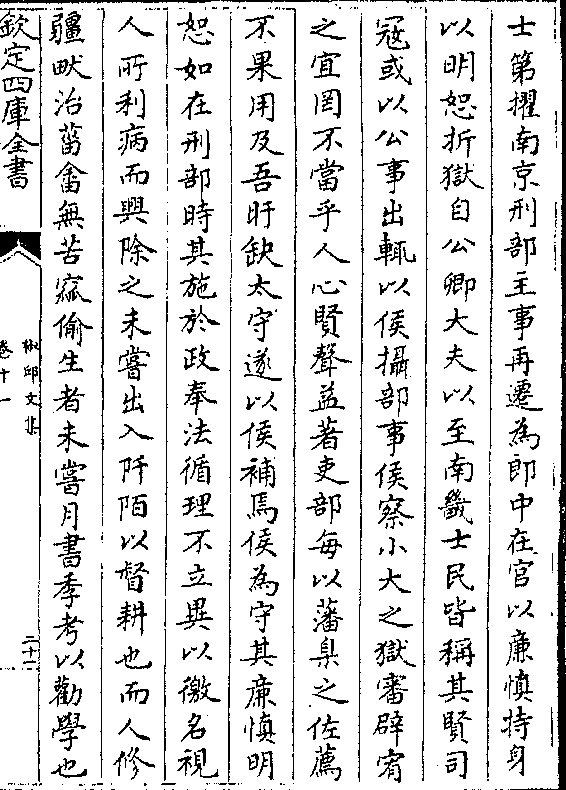 士第擢南京刑部主事再遷為郎中在官以廉慎持身
以明恕折獄自公卿大夫以至南畿士民皆稱其賢司
冦或以公事出輒以侯攝部事侯察小大之獄審辟宥
之宜罔不當乎人心賢聲益著吏部每以藩臬之佐薦
不果用及吾盱缺太守遂以侯補焉侯為守其廉慎明
恕如在刑部時其施於政奉法循理不立異以徼名視
人所利病而興除之未嘗出入阡陌以督耕也而人修
疆畎治菑畬無苦窳偷生者未嘗月書季考以勸學也
欽定四庫全書
椒邱文集
卷十一
二十二